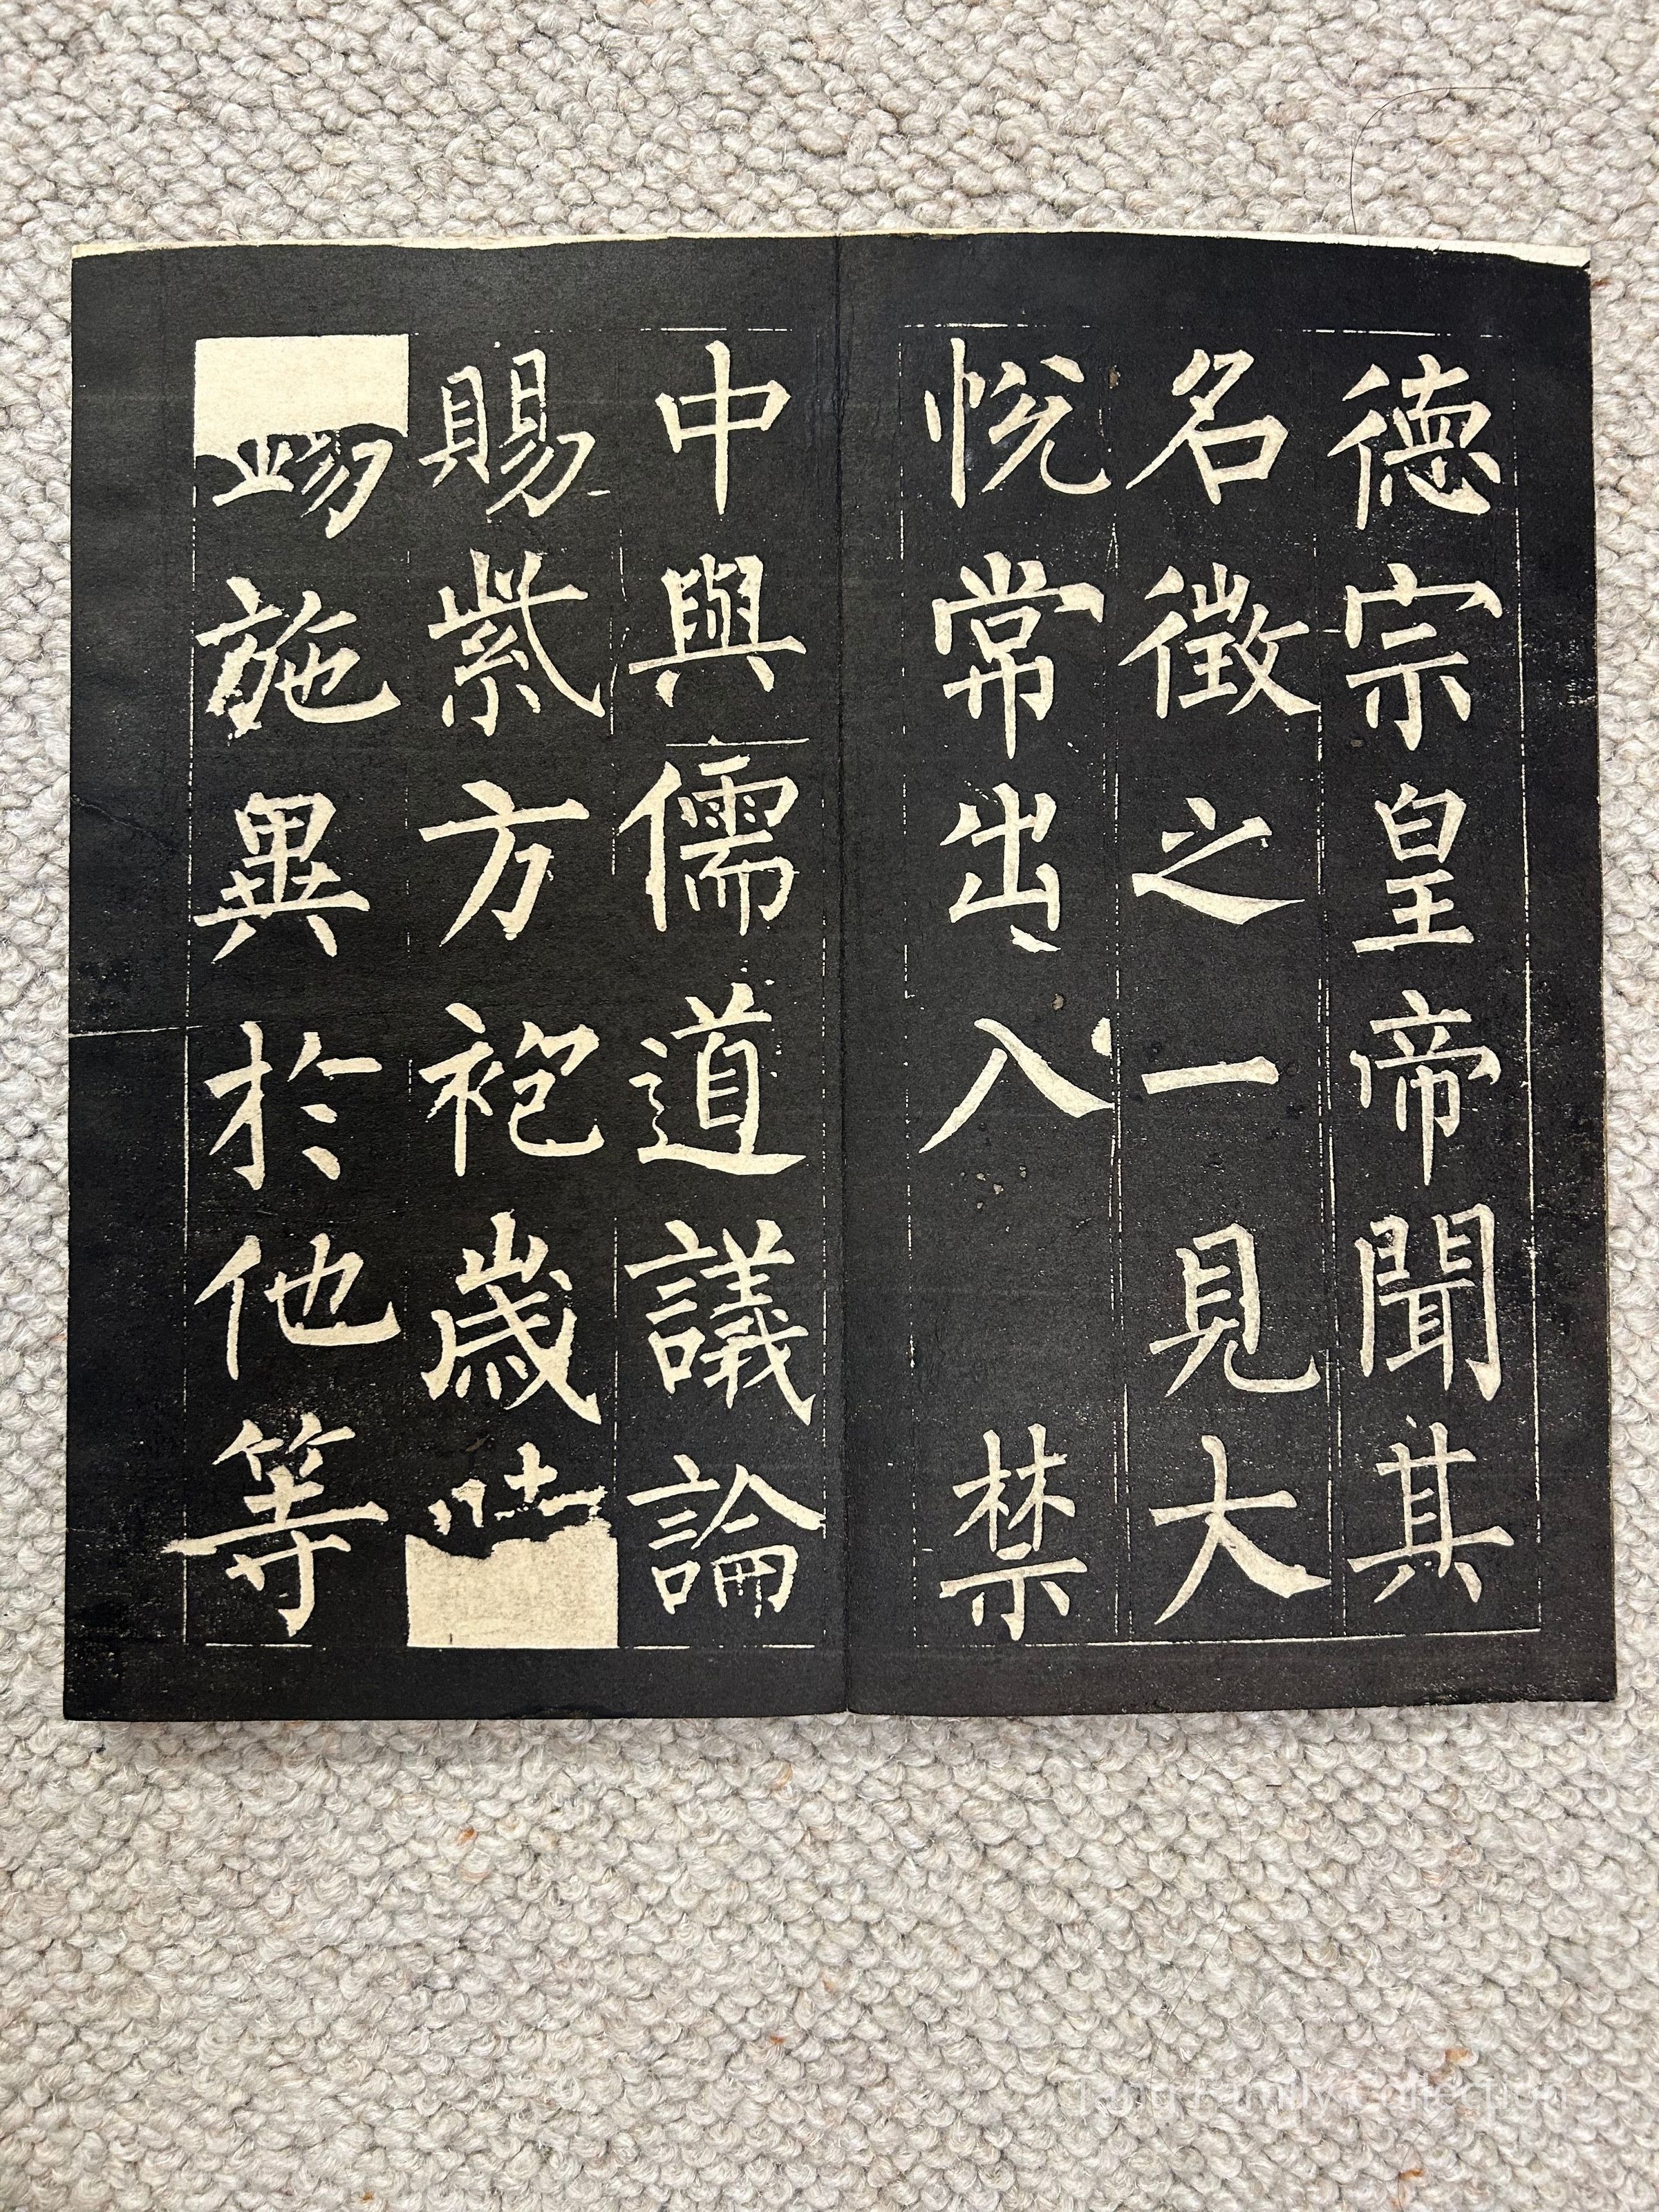 德宗皇帝聞其
名徵之一見大
悅常出入 禁
中與儒道議論
賜紫方袍歲時
錫施異於他等
Tanu Family Collection